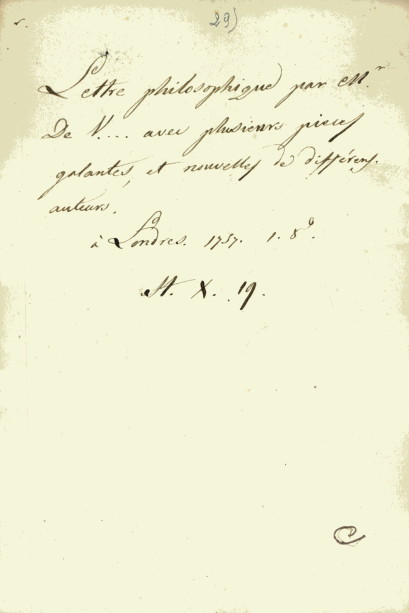 29)
Lettre philosophique par Mr.
De V... avec plusieurs pieces
galantes, et nouvelles de différens.
auteurs.
à Londres. 1757. 1. 8o.
St. X. 19.